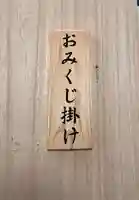 おみくじ掛け